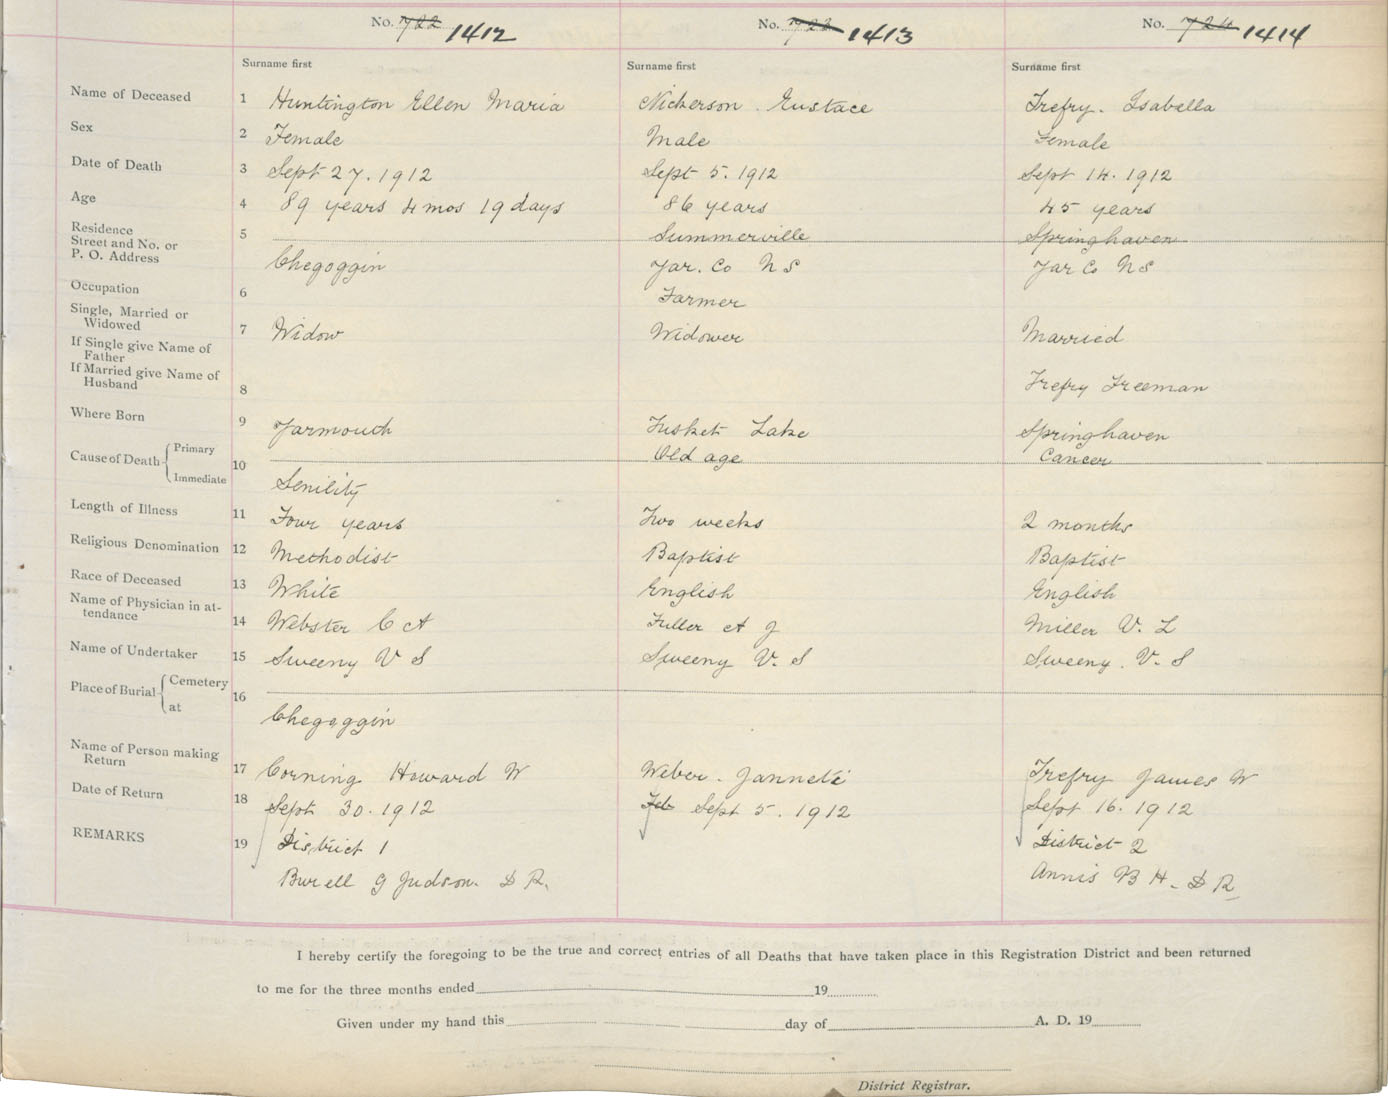 No. 722 1412 No. 723 1413 No. 724 1414
Surname first Surname first Surname first
Name of Deceased 1 Huntington Ellen Maria Nickerson. Eustace Trefry. Isabella
Sex 2 Female Male Female
Date of Death 3 Sept 27. 1912 Sept 5. 1912 Sept 14. 1912
Age 4 89 years 4 mos 19 days 86 years 45 years
Residence 5 Summerville Springhaven
Street and No. or
P. O. Address Chegoggin Yar. Co N S Yar Co N S
Occupation 6 Farmer
Single, Married or
Widowed 7 Widow Widower Married
If Single give Name of
Father
If Married give Name of
Husband 8 Trefry Freeman
Where Born 9 Yarmouth Tusket Lake Springhaven
Cause of Death Primary 10 Old age Cancer
Immediate Senility
Length of Illness 11 Four years Two weeks 2 months
Religious Denomination 12 Methodist Baptist Baptist
Race of Deceased 13 White English English
Name of Physician in at-
tendance 14 Webster C A Fuller A J Miller V. L
Name of Undertaker 15 Sweeny V S Sweeny V. S Sweeny. V. S
Place of Burial Cemetery 16
at Chegoggin
Name of Person making
Return 17 Corning Howard W Weber. Jannetè Trefry James W
Date of Return 18 Sept 30. 1912 Feb Sept 5. 1912 Sept 16. 1912
REMARKS 19 District 1 District 2
Burell G Judson. D R. Annis B H. D R
I hereby certify the foregoing to be the true and correct entries of all Deaths that have taken place in this Registration District and been returned
to me for the three months ended 19
Given under my hand this day of A. D. 19
District Registrar.